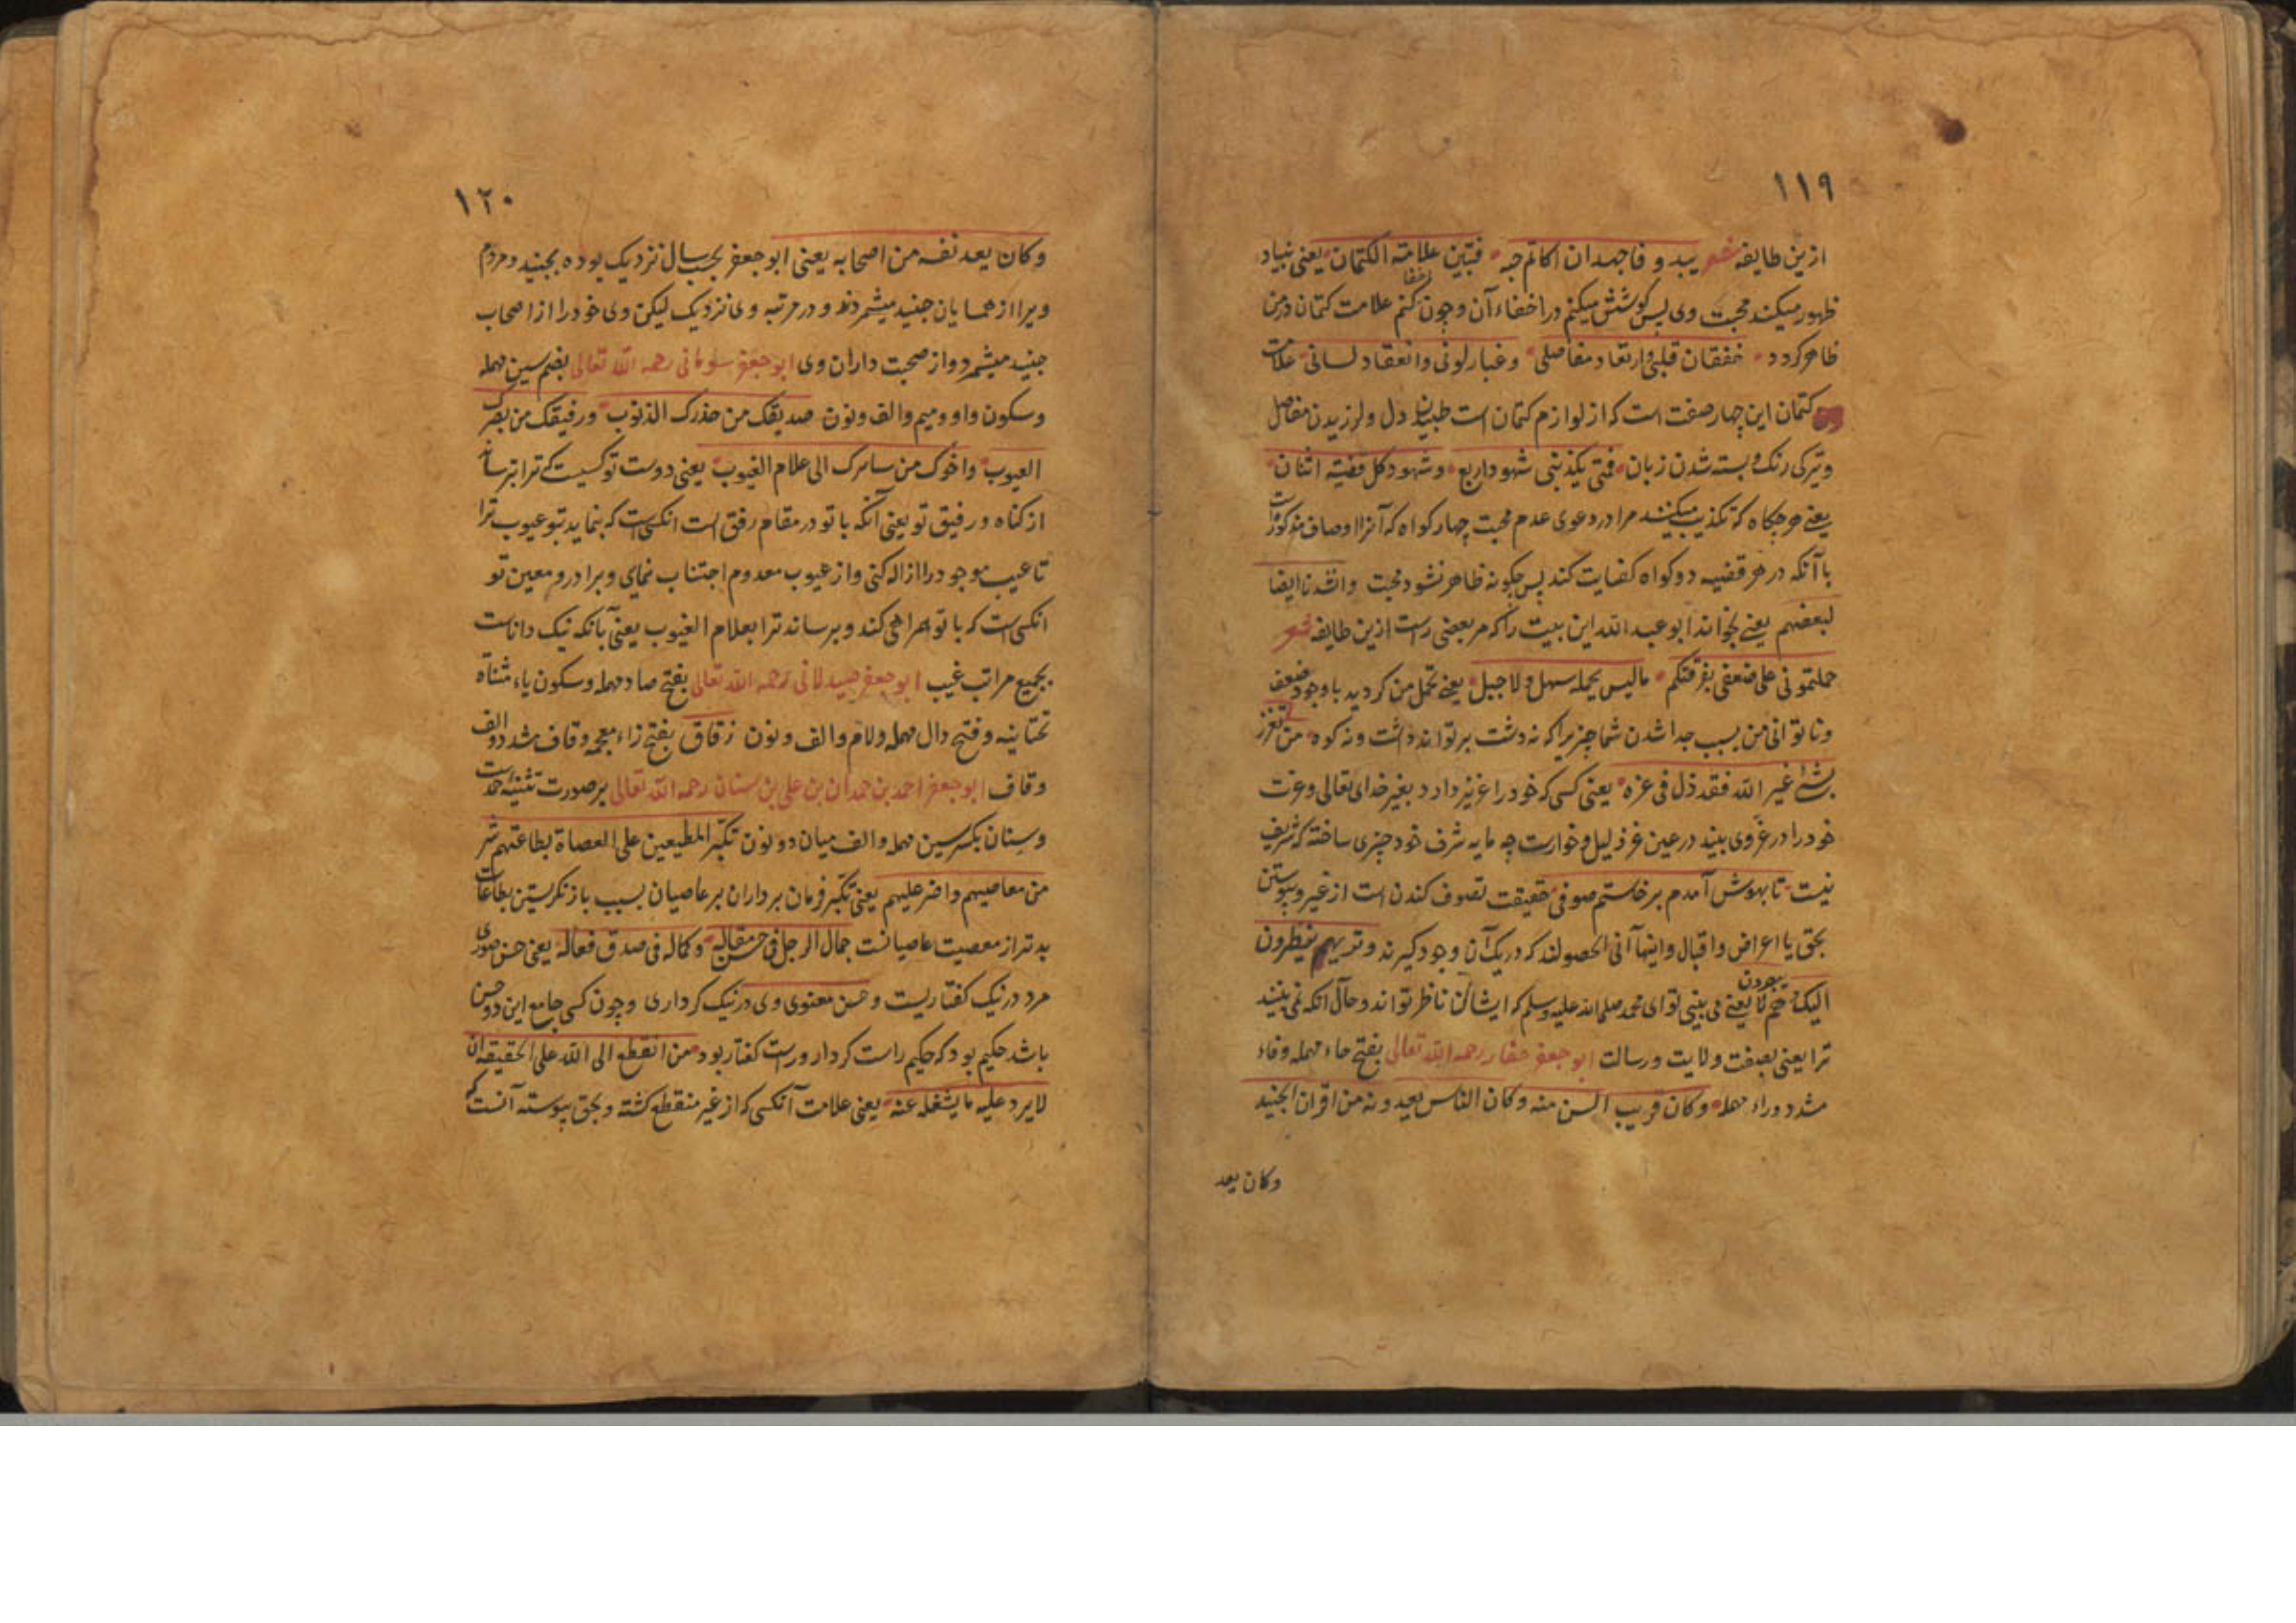 ۱۱۹
ازین طایفه شعر یبدو فاجهدان اکاتم حبه فتبین علامة الکتمان یعنی بنیاد
ظهور میکند محبت وی پس کوشش میکنم در اخفاء آن و چون کنم اخفا علامت کتمان در من
ظاهر کردد خفقان قلبی وارتعاد مفاصلی وغبار لونی وانعقاد لسانی علامت
کتمان این چهار صفت است که از لوازم کتمان است طپیدن دل و لرزیدن مفاصل
وتیرکی رنک و بسته شدن زبان فمتی یکذبنی شهود اربع وشهود کل قضیة اثنان
یعنی هرجکاه که تکذیب میکنند مرا در دعوی عدم محبت چهار کواه که آنرا اوصاف مذکورست
باآنکه در هر قضیه دو کواه کفایت کند پس چکونه ظاهر نشود محبت وانشدنا ایضا
لبعضهم یعنی بخواند ابو عبد الله این بیت را که مر بعضی راست ازین طایفه شعر
حملتمونی علی ضعفی بفرقتکم مالیس یحمله سهل ولا جبل یعنی تحمل من کردید باوجود ضعف
وناتوانی من بسبب جدا شدن شما چیزیرا که نه دشت برتواند داشت ونه کوه من تعزز
بشئ غیر الله فقد ذل فی عزه یعنی کسی که خود را عزیز دارد بغیر خدای تعالی وعزت
خود را در غیر وی بیند در عین عز ذلیل و خوارست چه مایه شرف خود چیزی ساخته که شریف
نیست تا بهوش آمدم برخاستم صوفی حقیقت تصوف کندن است از غیر و پیوستن
بحق یا اعراض واقبال واینها آنی الحصولند که دریک آن وجود کیرند وتریهم ینظرون
الیک وهم لا یبصرون یعنی می بینی تو ای محمد صلی الله علیه وسلم که ایشان ناظر تواند وحال آنکه نمی بینند
ترا یعنی بصفت ولایت ورسالت ابو جعفر حفار رحمه الله تعالی بفتح حاء مهمله وفاء
مشدد وراء مهمله وکان قریب السن منه وکان الناس یعدونه من اقران الجنید
وکان یعد
۱۲۰
وکان یعد نفسه من اصحابه یعنی ابو جعفر بحسب سال نزدیک بوده بجنید ومردم
ویرا از همسایان جنید میشمردند و در مرتبه وی نزدیک لیکن وی خود را از اصحاب
جنید میشمرد واز صحبت داران وی ابو جعفر سومانی رحمه الله تعالی بضم سین مهمله
وسکون واو ومیم والف ونون صدیقک من حذرک الذنوب ورفیقک من بصرک
العیوب واخوک من سایرک الی علام الغیوب یعنی دوست تو کسیست که ترا بترساند
از کناه ورفیق تو یعنی آنکه با تو در مقام رفق است انکس است که بنماید بتو عیوب ترا
تا عیب موجود را ازاله کنی واز عیوب معدوم اجتناب نمای وبرادر ومعین تو
انکس است که با تو همراهی کند وبرساند ترا بعلام الغیوب یعنی بآنکه نیک داناست
بجمیع مراتب غیب ابو جعفر صیدلانی رحمه الله تعالی بفتح صاد مهمله وسکون یاء مثناة
تحتانیه وفتح دال مهمله ولام والف ونون زقاق بفتح زاء معجمه وقاف مشدد والف
وقاف ابو جعفر احمد بن حمدان بن علی بن سنان رحمه الله تعالی بر صورت تثنیه حمد است
وسنان بکسر سین مهمله والف میان دو نون تکبر المطیعین علی العصاة بطاعتهم شر
من معاصیهم واضر علیهم یعنی تکبر فرمان برداران بر عاصیان بسبب باز نکریستن بطاعات
بدتر از معصیت عاصیانست جمال الرجل فی حسن مقاله وکماله فی صدق فعاله یعنی حسن صوری
مرد در نیک کفتاریست وحسن معنوی وی در نیک کرداری وچون کسی جامع این دو حسن
باشد حکیم بود که حکیم راست کردار وراست کفتار بود من انقطع الی الله علی الحقیقة ان
لا یرد علیه ما یشغله عنه یعنی علامت آنکسی که از غیر منقطع کشته وبحق پیوسته آنست که